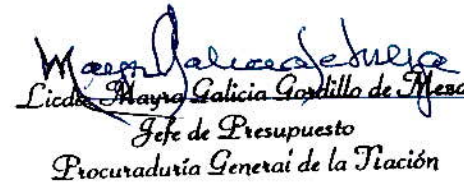 Licda. Mayra Galicia Gordillo de Mesa
Jefe de Presupuesto
Procuraduría General de la Nación